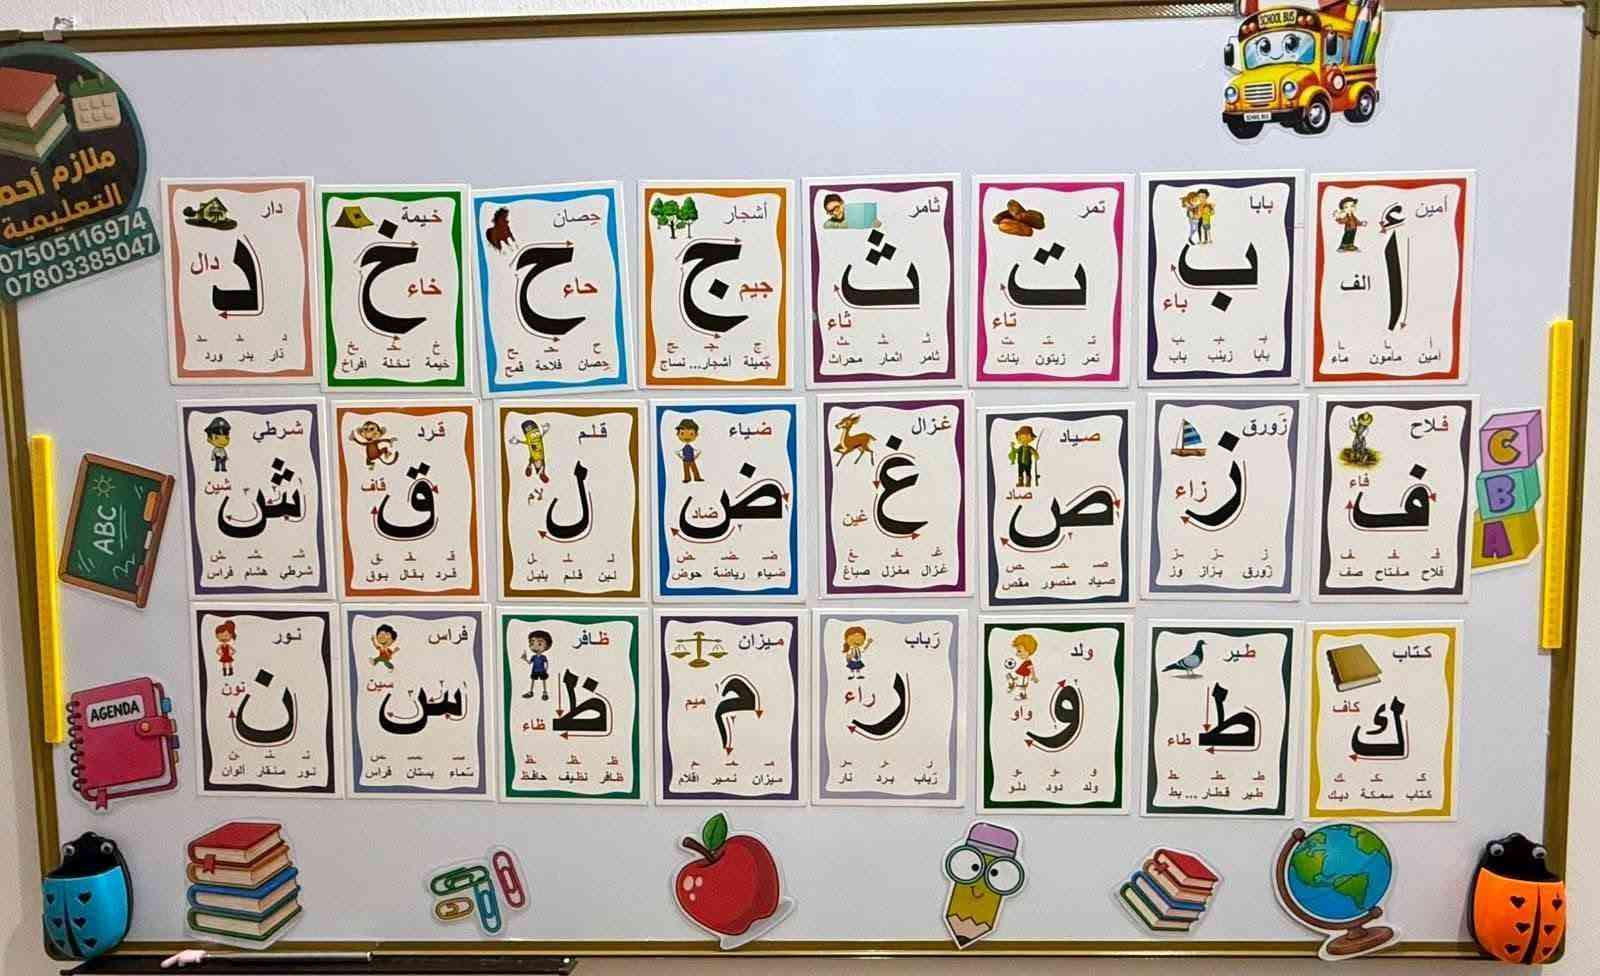 SCHOOL BUS
SCHOOL BUS
ملازم أحمد
التعليمية
07505116974
07803385047
أمين
أ
الف
أ ـا ـا
أمين مأمون ماء
بابا
ب
باء
بـ ـبـ ـب
بابا زينب باب
تمر
ت
تاء
تـ ـتـ ـت
تمر زيتون بنات
ثامر
ث
ثاء
ثـ ـثـ ـث
ثامر اثمار محراث
أشجار
ج
جيم
جـ ـجـ ـج
جميلة أشجار... نساج
حصان
ح
حاء
حـ ـحـ ـح
حصان فلاحة قمح
خيمة
خ
خاء
خـ ـخـ ـخ
خيمة نخلة افراخ
دار
د
دال
د ـد ـد
دار بدر ورد
فلاح
ف
فاء
فـ ـفـ ـف
فلاح مفتاح صف
زورق
ز
زاء
ز ـز ـز
زورق بزاز وز
صياد
ص
صاد
صـ ـصـ ـص
صياد منصور مقص
غزال
غ
غين
غـ ـغـ ـغ
غزال مغزل صباغ
ضياء
ض
ضاد
ضـ ـضـ ـض
ضياء رياضة حوض
قلم
ل
لام
لـ ـلـ ـل
لين قلم بلبل
قرد
ق
قاف
قـ ـقـ ـق
قرد بقال بوق
شرطي
ش
شين
شـ ـشـ ـش
شرطي هشام فراس
كتاب
ك
كاف
كـ ـكـ ـك
كتاب سمكة ديك
طير
ط
طاء
طـ ـطـ ـط
طير قطار... بط
ولد
و
واو
و ـو ـو
ولد دود دلو
رباب
ر
راء
ر ـر ـر
رباب برد نار
ميزان
م
ميم
مـ ـمـ ـم
ميزان نمير اقلام
ظافر
ظ
ظاء
ظـ ـظـ ـظ
ظافر نظيف حافظ
فراس
س
سين
سـ ـسـ ـس
سماء بستان فراس
نور
ن
نون
نـ ـنـ ـن
نور منقار ألوان
ABC
AGENDA
C
B
A